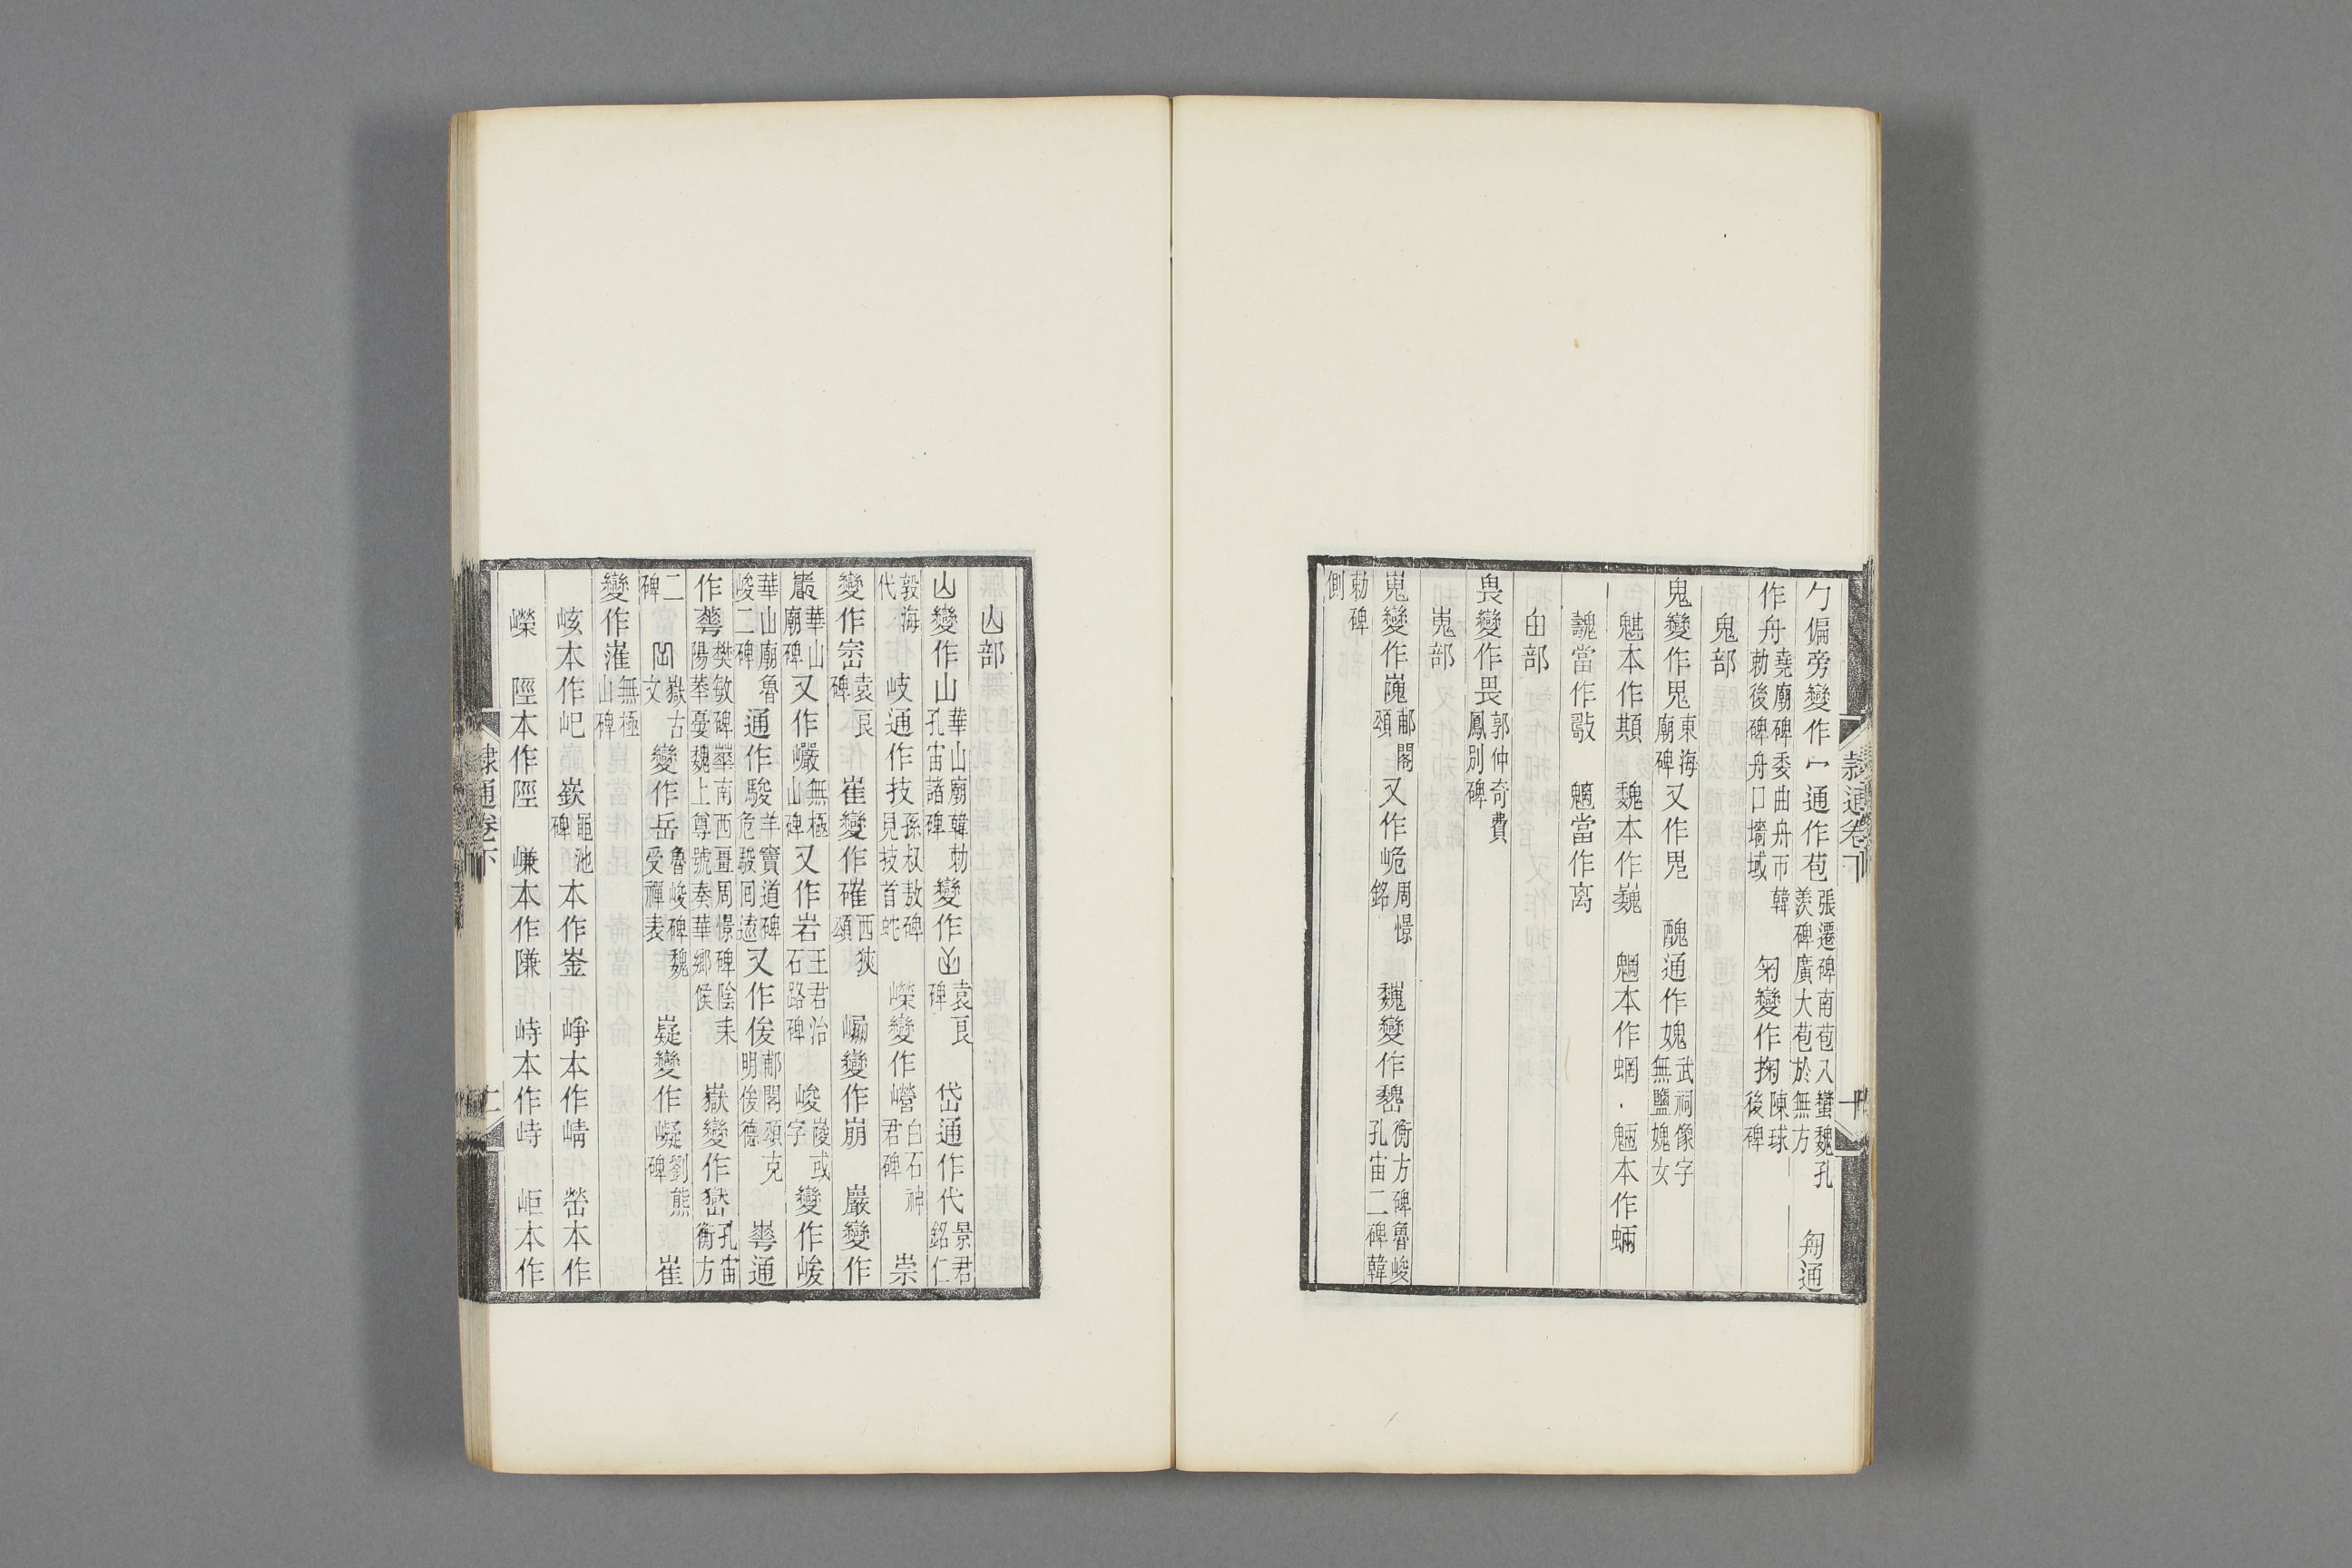 隸通卷下
十
勹偏旁變作宀通作苞張遷碑南苞八蠻魏孔羨碑廣大苞於無方 匊通
作舟堯廟碑委曲舟帀韓勅後碑舟口墻域 匊變作掬陳球後碑
鬼部
鬼變作鬼東海廟碑又作鬼 醜通作媿武祠像字無鹽媿女
魌本作䫏 魏本作巍 魍本作蝄 魎本作蜽
魗當作敼 魑當作离
甶部
畏變作畏郭仲奇費鳳別碑
嵬部
嵬變作嵬郙閣頌又作峗周憬銘 巍變作魏衡方碑魯峻孔宙二碑韓
勅碑側
山部
山變作山華山廟韓勅孔宙諸碑變作 袁良碑 岱通作代景君銘仁
敦海代 岐通作技孫叔敖碑見技首蛇 嶸變作㠛白石神君碑 崇
變作崈袁良碑 崔變作確西狹頌 崩變作崩 巖變作
巖華山廟碑又作巖無極山碑又作岩王君治石路碑 峻㟮或字變作峻
華山廟魯峻二碑通作駿羊竇道碑危駿回遠又作俊郙閣頌克明俊德 崋通
作蕐樊敏碑蕐南西畺周憬碑陰耒陽蕐憂魏上尊號奏華鄉侯 嶽變作 孔宙衡方
二碑 嶽古文變作岳魯峻碑魏受禪表 嶷變作㠜劉熊碑 崔
變作漼無極山碑
㟃本作屺 嶔黽池碑本作崟 崢本作崝 嶨本作
嶸 陘本作陘 嵰本作隒 峙本作峙 岠本作
隸通卷下
十一